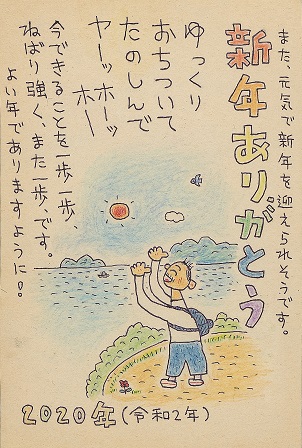 また、元気で新年を迎えられそうです。
新年ありがとう
ゆっくり
おちついて
たのしんで
ヤーッホーッ
ホー
今できることを一歩一歩、
ねばり強く、また一歩、です。
よい年でありますように!!
2020年(令和2年)